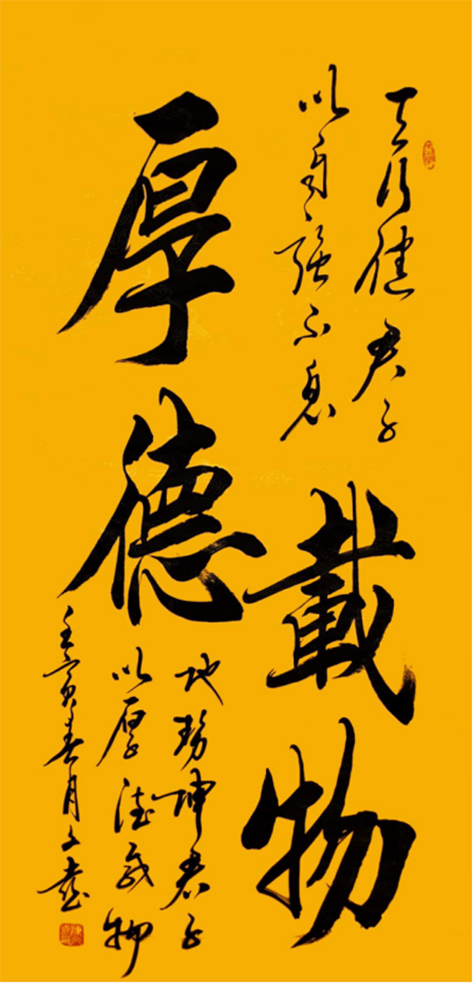 天行健君子
以自强不息
厚德
載物
地势坤君子
以厚德载物
壬寅春月